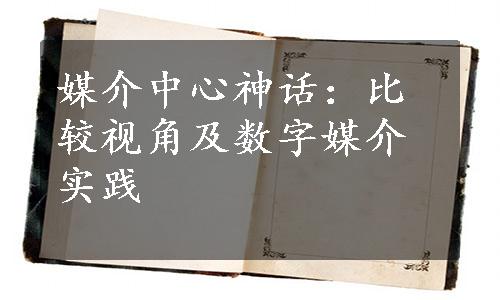 媒介中心神话：比
较视角及数字媒介
实践